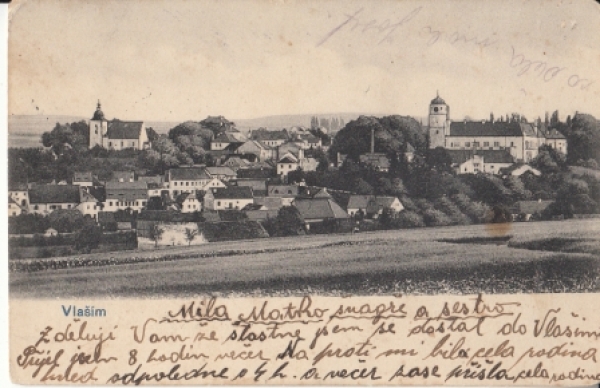 Vlašim
Milá Matko švagře a sestro
Zděluji Vam že štastně jsem se dostal do Vlašimi
Přijel jsem 8 hodin večer Na proti mi bila cela rodina
hned odpoledne o 4 h. a večer zase přišla cela rodina